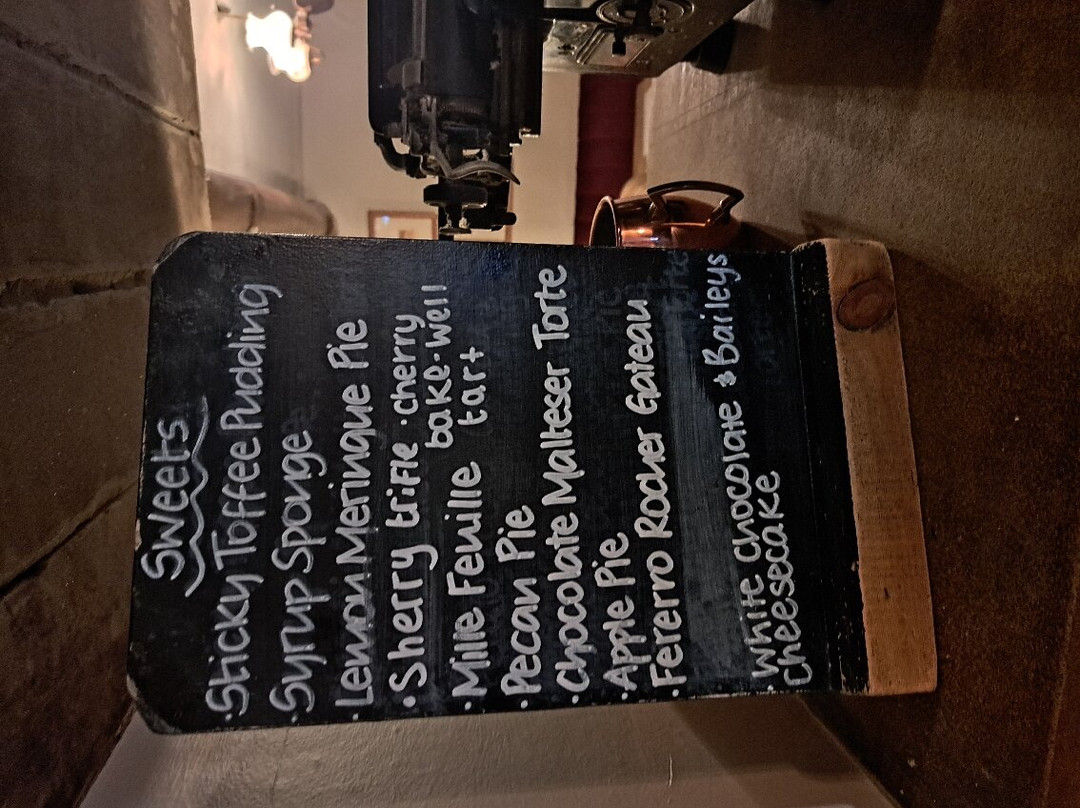 Sweets
·Sticky Toffee Pudding
·Syrup Sponge
·Lemon Meringue Pie
·Sherry trifle ·cherry
bake-well
·Mille Feuille tart
·Pecan Pie
·Chocolate Malteser Torte
·Apple Pie
·Fererro Rocher Gateau
·White chocolate & Baileys
Cheesecake